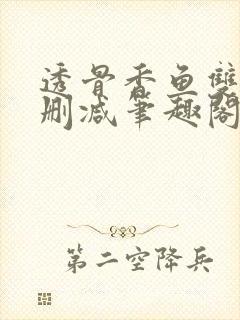 透骨香鱼雙
删减筆趣閣
第二空降兵